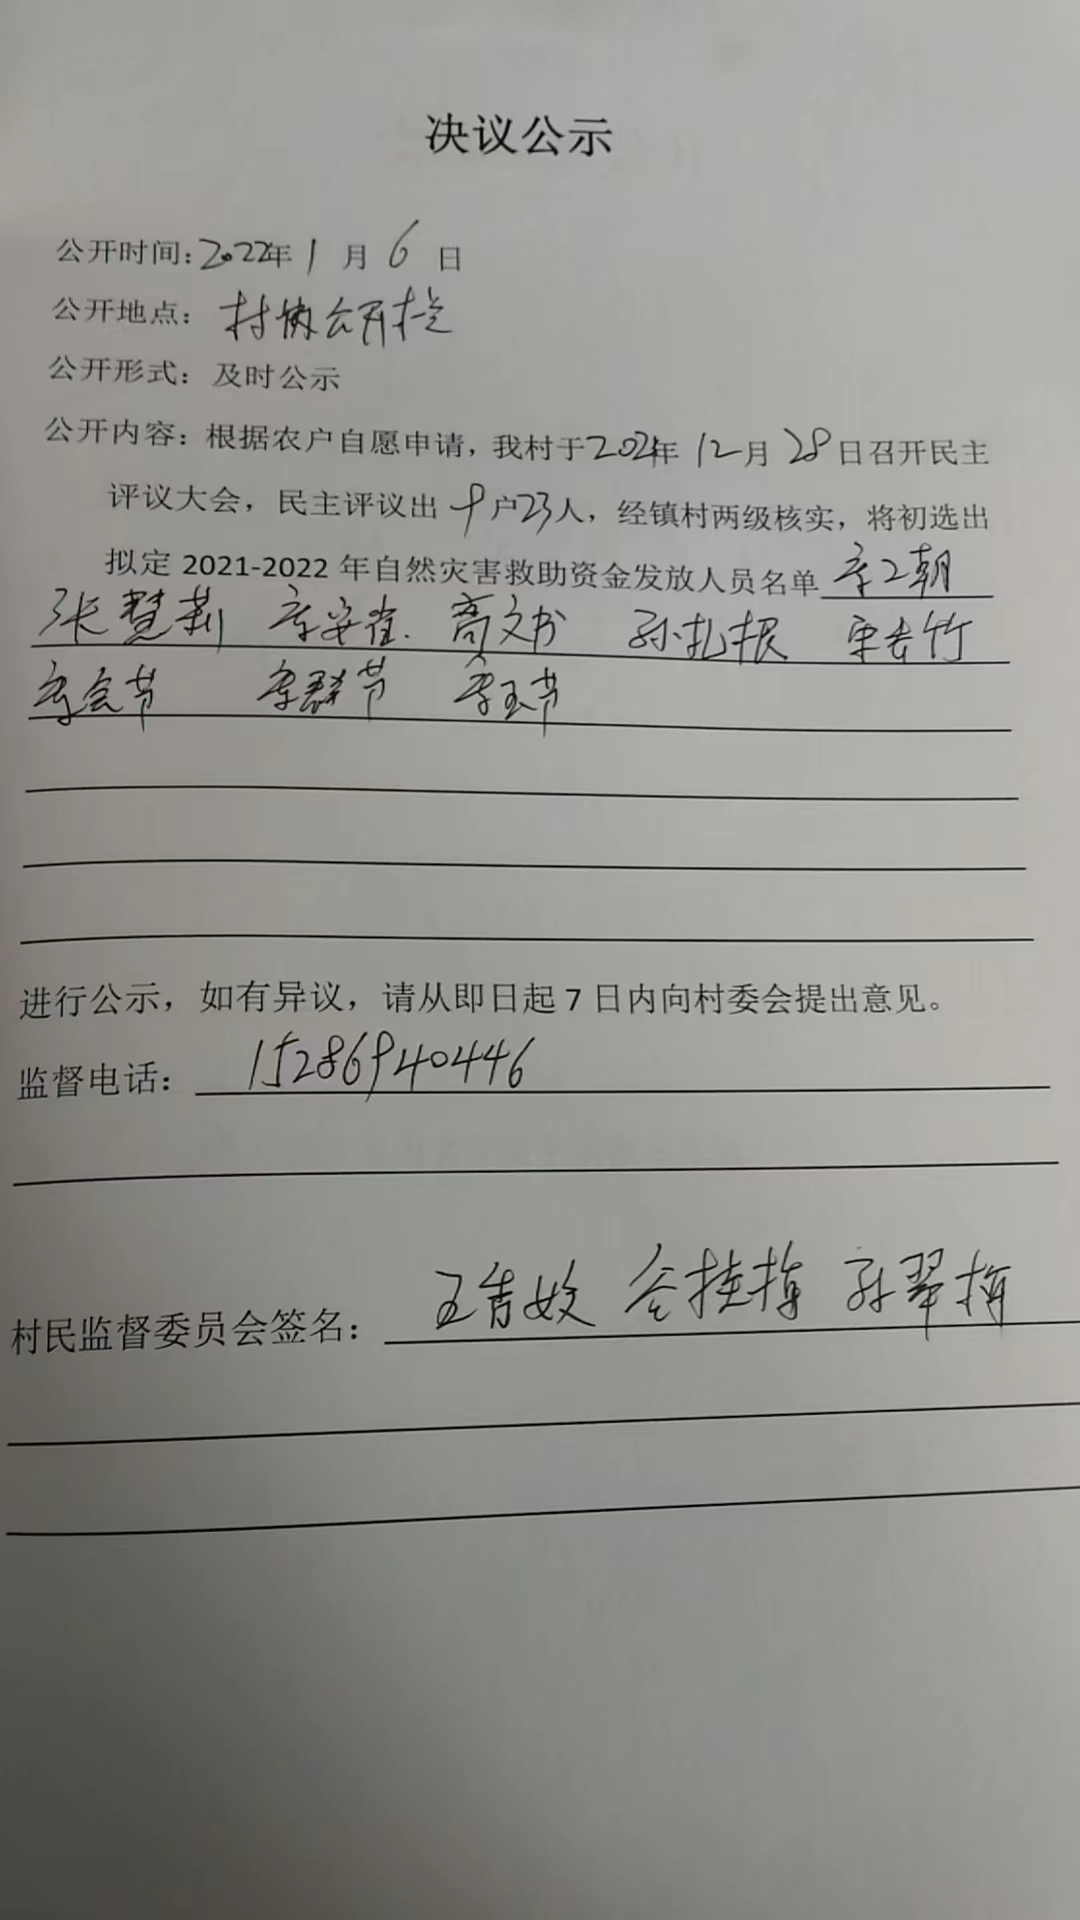 决议公示
公开时间：2022年1月6日
公开地点：村 公开栏
公开形式：及时公示
公开内容：根据农户自愿申请，我村于2021年12月28日召开民主
评议大会，民主评议出9户23人，经镇村两级核实，将初选出
拟定2021-2022年自然灾害救助资金发放人员名单李二朝
张慧莉 李安 高文 孙扎根
李会节 李群节 李玉节
进行公示，如有异议，请从即日起7日内向村委会提出意见。
监督电话：15286940446
村民监督委员会签名：王 孙翠梅